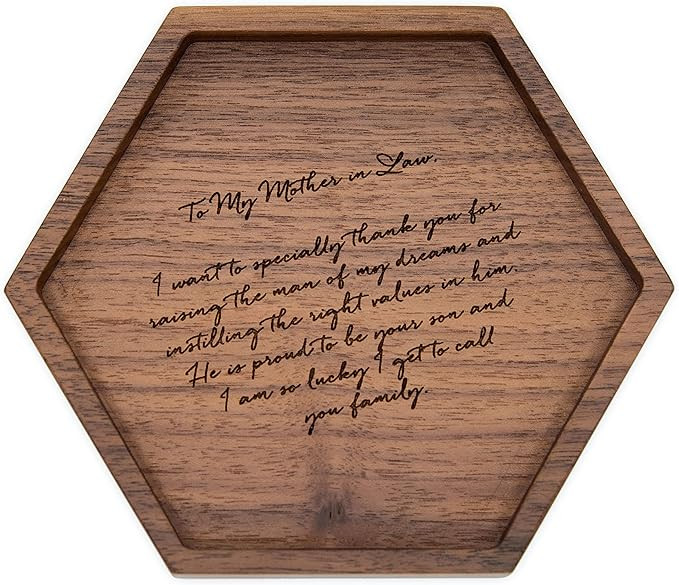 To My Mother in Law,
I want to specially thank you for
raising the man of my dreams and
instilling the right values in him.
He is proud to be your son and
I am so lucky I get to call
you family.